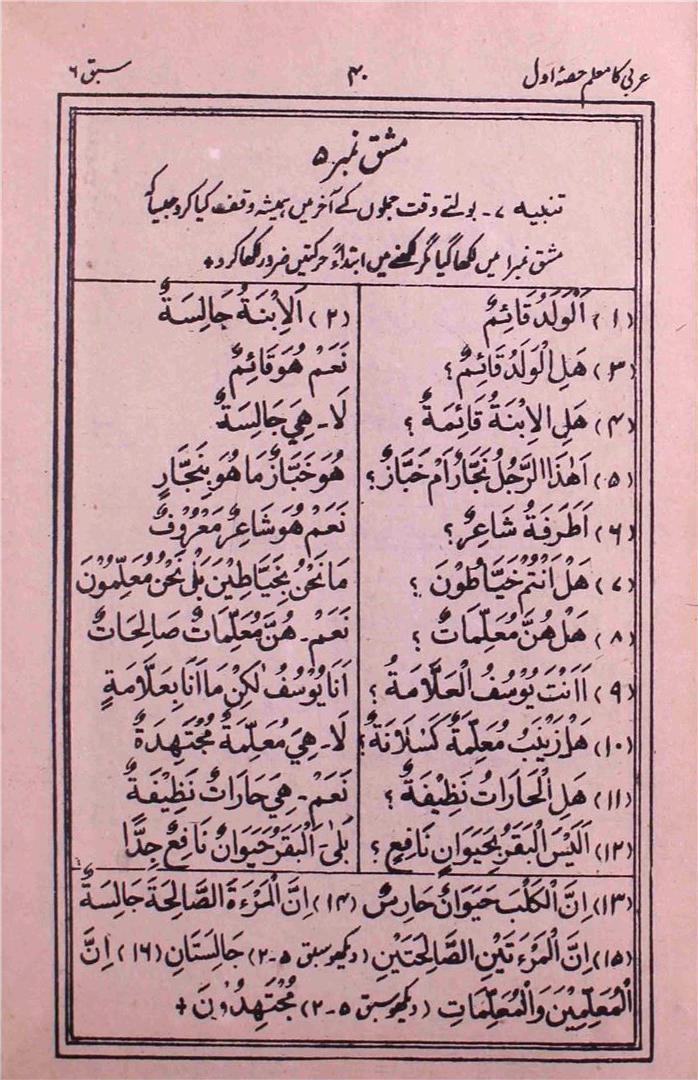 عربی کا معلم حصۂ اول ۴۰ سبق ۶
مشق نمبر ۵
تنبیہ ۷۔ بولتے وقت جملوں کے آخر میں ہمیشہ وقف کیا کرو جیسا کہ
مشق نمبر۱ میں لکھا گیا مگر لکھنے میں ابتداءً حرکتیں ضرور لکھا کرو +
(۱) اَلْوَلَدُ قَائِمٌ (۲) اَلْاِبْنَةُ جَالِسَةٌ
(۳) هَلِ الْوَلَدُ قَائِمٌ؟ نَعَمْ هُوَ قَائِمٌ
(۴) هَلِ الْاِبْنَةُ قَائِمَةٌ ؟ لَا۔ هِيَ جَالِسَةٌ
(۵) اَهٰذَا الرَّجُلُ نَجَّارٌ اَمْ خَبَّازٌ؟ هُوَ خَبَّازٌ مَا هُوَ بِنَجَّارٍ
(۶) اَطَرَفَةُ شَاعِرٌ؟ نَعَمْ هُوَ شَاعِرٌ مَعْرُوْفٌ
(۷) هَلْ اَنْتُمْ خَيَّاطُوْنَ ؟ مَا نَحْنُ بِخَيَّاطِيْنَ بَلْ نَحْنُ مُعَلِّمُوْنَ
(۸) هَلْ هُنَّ مُعَلِّمَاتٌ ؟ نَعَمْ۔ هُنَّ مُعَلِّمَاتٌ صَالِحَاتٌ
(۹) اَاَنْتَ يُوْسُفُ الْعَلَّامَةُ ؟ اَنَا يُوْسُفُ لٰكِنْ مَا اَنَا بِعَلَّامَةٍ
(۱۰) هَلْ زَيْنَبُ مُعَلِّمَةٌ كَسْلَانَةٌ؟ لَا۔ هِيَ مُعَلِّمَةٌ مُجْتَهِدَةٌ
(۱۱) هَلِ الْحَارَاتُ نَظِيْفَةٌ ؟ نَعَمْ۔ هِيَ حَارَاتٌ نَظِيْفَةٌ
(۱۲) اَلَيْسَ الْبَقَرُ بِحَيَوَانٍ نَافِعٍ ؟ بَلٰى۔ اَلْبَقَرُ حَيَوَانٌ نَافِعٌ جِدًّا
(۱۳) اِنَّ الْكَلْبَ حَيَوَانٌ حَارِسٌ (۱۴) اِنَّ الْمَرْءَةَ الصَّالِحَةَ جَالِسَةٌ
(۱۵) اِنَّ الْمَرْءَتَيْنِ الصَّالِحَتَيْنِ (دیکھو سبق ۵-۲) جَالِسَتَانِ (۱۶) اِنَّ
الْمُعَلِّمِيْنَ وَالْمُعَلِّمَاتِ (دیکھو سبق ۵-۲) مُجْتَهِدُوْنَ +